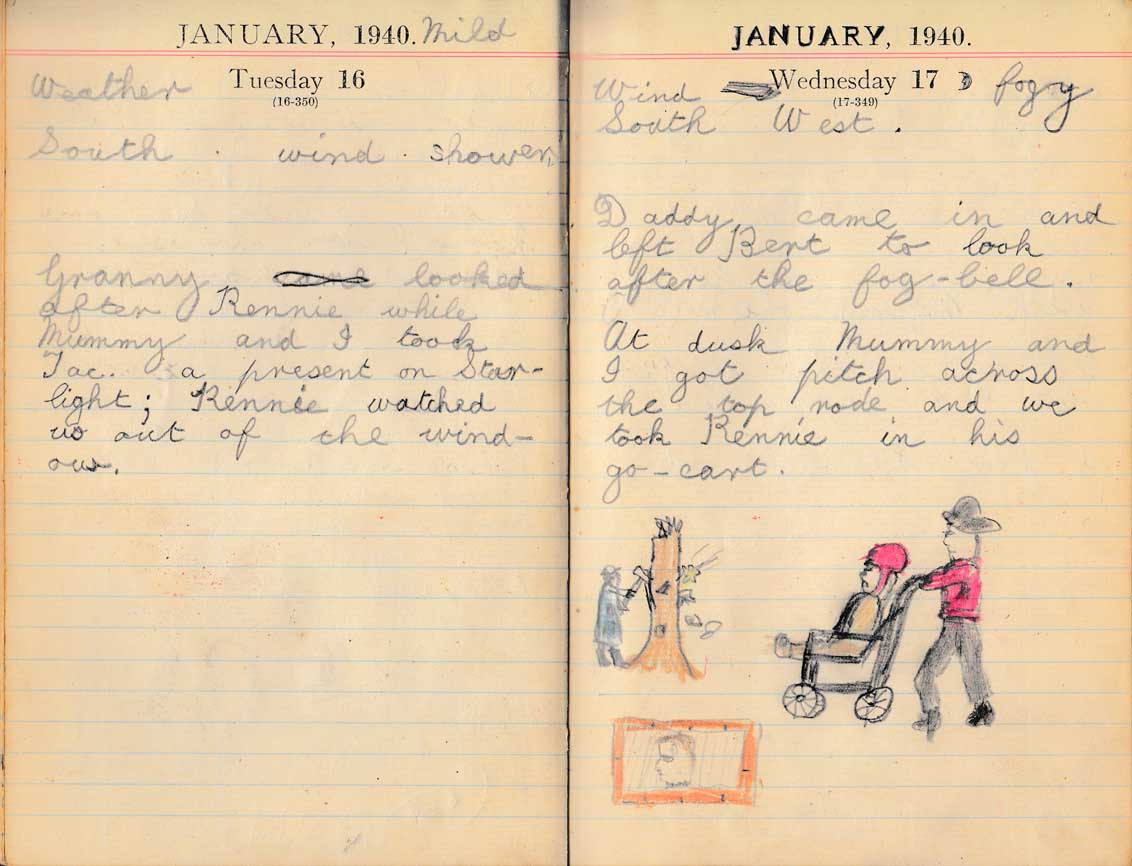 JANUARY, 1940. Mild
Tuesday 16
(16-350)
Weather
South. wind. shower.
Granny looked
after Rennie while
Mummy and I took
Tac. a present on Star-
light; Rennie watched
us out of the wind-
ow.
JANUARY, 1940.
Wednesday 17
(17-349)
Wind fogy
South West.
Daddy came in and
left Bert to look
after the fog-bell.
At dusk Mummy and
I got pitch across
the top rode and we
took Rennie in his
go-cart.